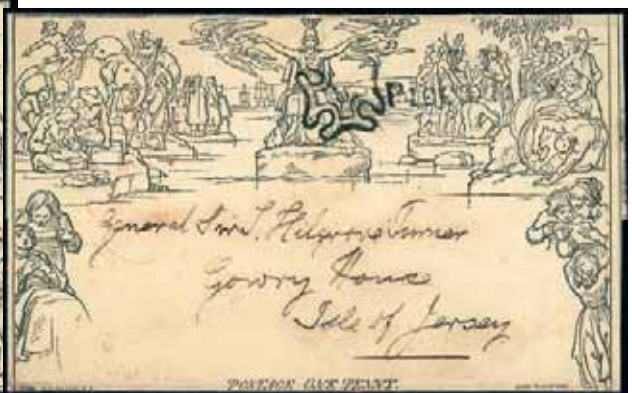 General Sir T. Hilgrove Turner
Gowry House
Isle of Jersey
POSTAGE ONE PENNY.